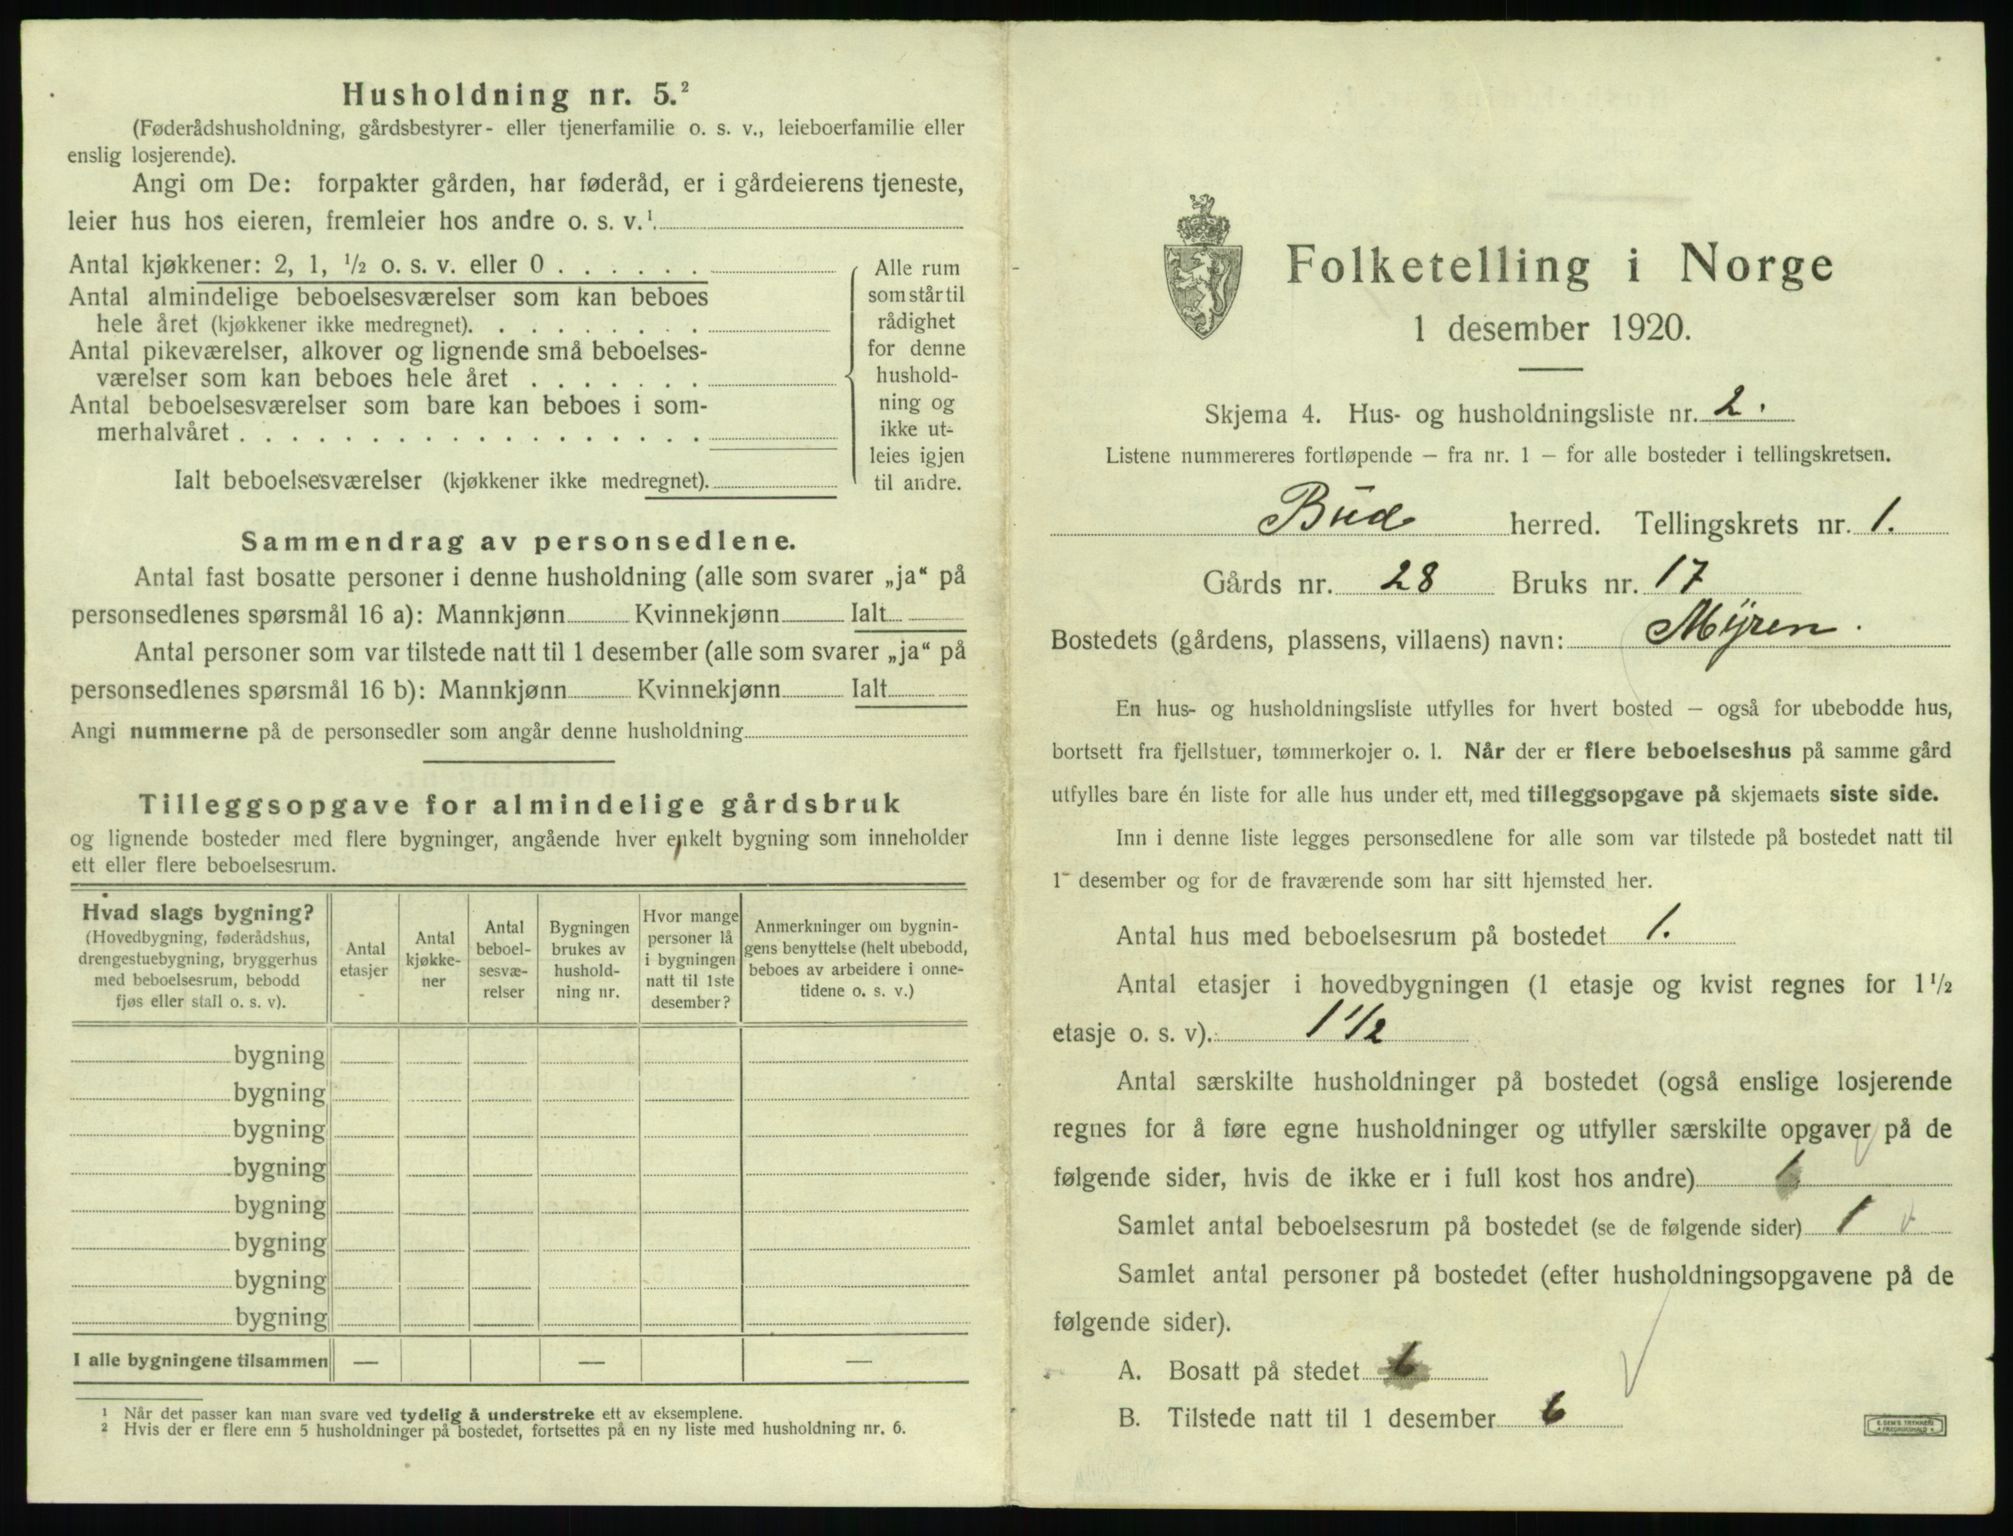 Husholdning nr. 5.²
(Føderådshusholdning, gårdsbestyrer- eller tjenerfamilie o. s. v., leieboerfamilie eller
enslig losjerende).
Angi om De: forpakter gården, har føderåd, er i gårdeierens tjeneste,
leier hus hos eieren, fremleier hos andre o. s. v.¹
Antal kjøkkener: 2, 1, ½ o. s. v. eller 0 . . . . . .
Antal almindelige beboelsesværelser som kan beboes
hele året (kjøkkener ikke medregnet). . . . . . . . .
Antal pikeværelser, alkover og lignende små beboelses-
værelser som kan beboes hele året . . . . . . .
Antal beboelsesværelser som bare kan beboes i som-
merhalvåret . . . . . . . . . . . . . . . . . .
Ialt beboelsesværelser (kjøkkener ikke medregnet).
Alle rum
som står til
rådighet
for denne
hushold-
ning og
ikke ut-
leies igjen
til andre.
Sammendrag av personsedlene.
Antal fast bosatte personer i denne husholdning (alle som svarer „ja“ på
personsedlenes spørsmål 16 a): Mannkjønn Kvinnekjønn Ialt
Antal personer som var tilstede natt til 1 desember (alle som svarer „ja“ på
personsedlenes spørsmål 16 b): Mannkjønn Kvinnekjønn Ialt
Angi nummerne på de personsedler som angår denne husholdning
Tilleggsopgave for almindelige gårdsbruk
og lignende bosteder med flere bygninger, angående hver enkelt bygning som inneholder
ett eller flere beboelsesrum.
Hvad slags bygning?
(Hovedbygning, føderådshus,
drengestuebygning, bryggerhus
med beboelsesrum, bebodd
fjøs eller stall o. s. v).
Antal
etasjer
Antal
kjøkke-
ner
Antal
beboel-
sesvæ-
relser
Bygningen
brukes av
hushold-
ning nr.
Hvor mange
personer lå
i bygningen
natt til 1ste
desember?
Anmerkninger om bygnin-
gens benyttelse (helt ubebodd,
beboes av arbeidere i onne-
tidene o. s. v.)
bygning
bygning
bygning
bygning
bygning
bygning
bygning
bygning
I alle bygningene tilsammen — — —
¹ Når det passer kan man svare ved tydelig å understreke ett av eksemplene.
² Hvis der er flere enn 5 husholdninger på bostedet, fortsettes på en ny liste med husholdning nr. 6.
Folketelling i Norge
1 desember 1920.
Skjema 4. Hus- og husholdningsliste nr. 2.
Listene nummereres fortløpende – fra nr. 1 – for alle bosteder i tellingskretsen.
Bud herred. Tellingskrets nr. 1.
Gårds nr. 28 Bruks nr. 17
Bostedets (gårdens, plassens, villaens) navn: Myren.
En hus- og husholdningsliste utfylles for hvert bosted – også for ubebodde hus,
bortsett fra fjellstuer, tømmerkojer o. l. Når der er flere beboelseshus på samme gård
utfylles bare én liste for alle hus under ett, med tilleggsopgave på skjemaets siste side.
Inn i denne liste legges personsedlene for alle som var tilstede på bostedet natt til
1 desember og for de fraværende som har sitt hjemsted her.
Antal hus med beboelsesrum på bostedet 1.
Antal etasjer i hovedbygningen (1 etasje og kvist regnes for 1½
etasje o. s. v). 1 1/2
Antal særskilte husholdninger på bostedet (også enslige losjerende
regnes for å føre egne husholdninger og utfyller særskilte opgaver på de
følgende sider, hvis de ikke er i full kost hos andre)
Samlet antal beboelsesrum på bostedet (se de følgende sider) 1
Samlet antal personer på bostedet (efter husholdningsopgavene på de
følgende sider).
A. Bosatt på stedet 6
B. Tilstede natt til 1 desember 6